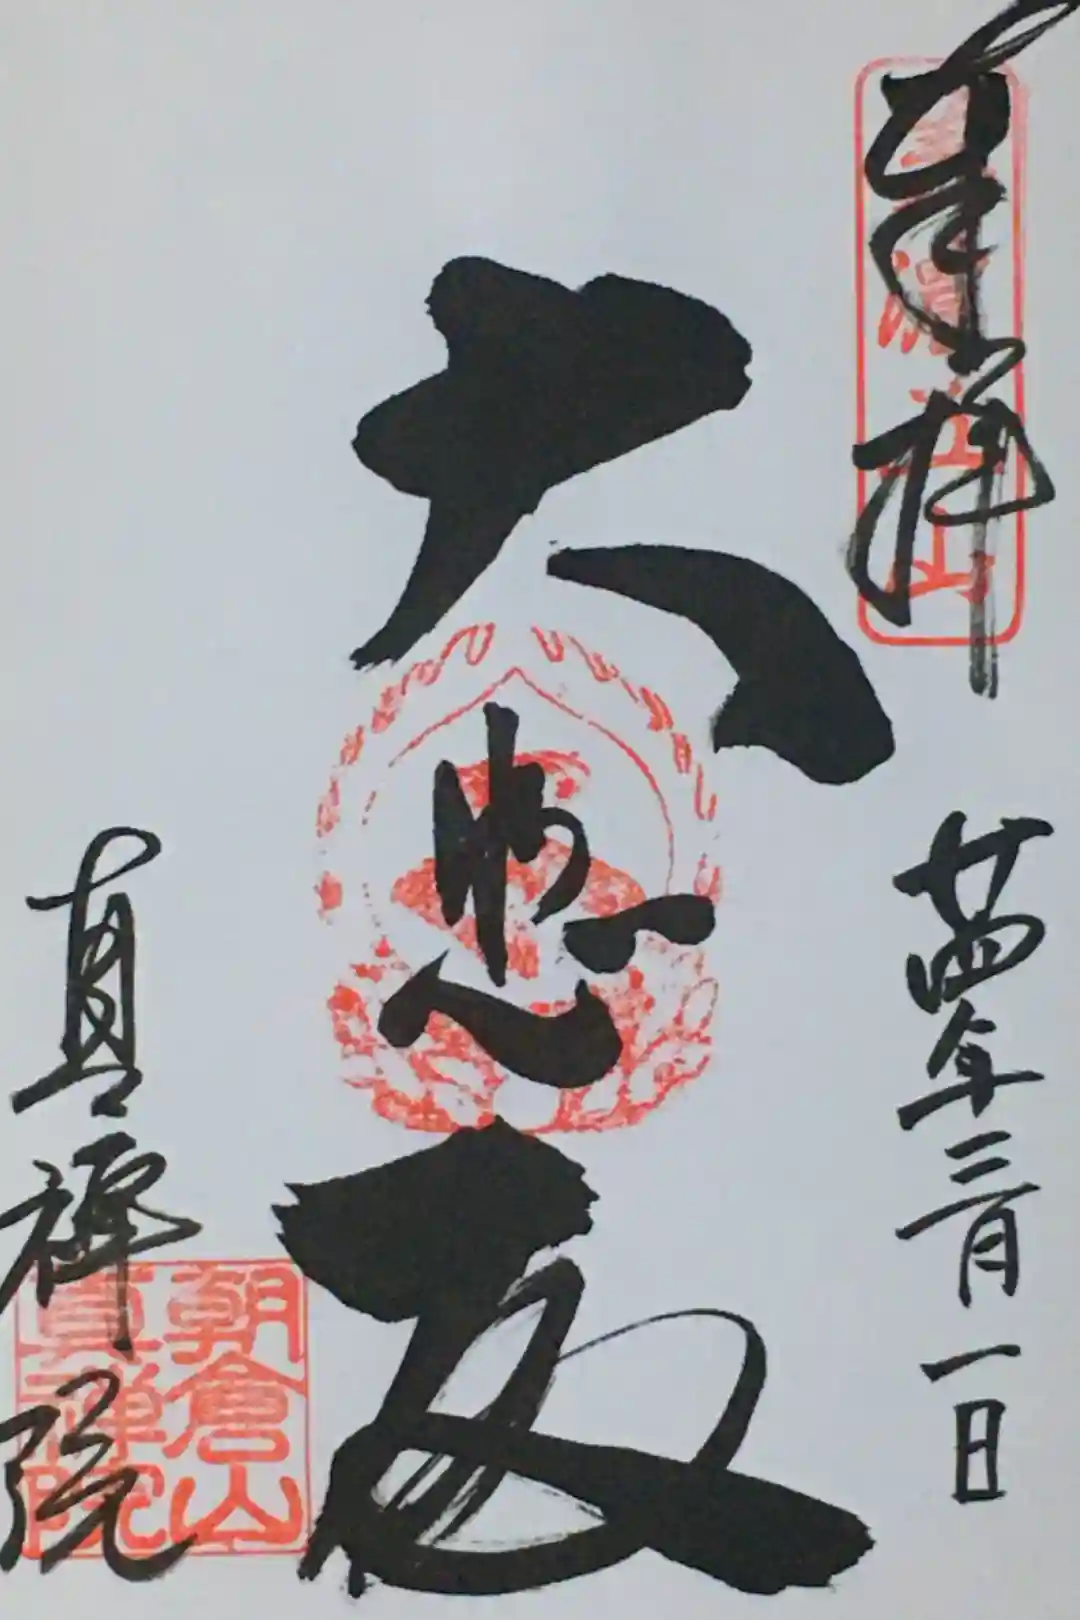 奉拝
廿四年三月一日
大悲殿
真禅院
朝倉山
真禅院